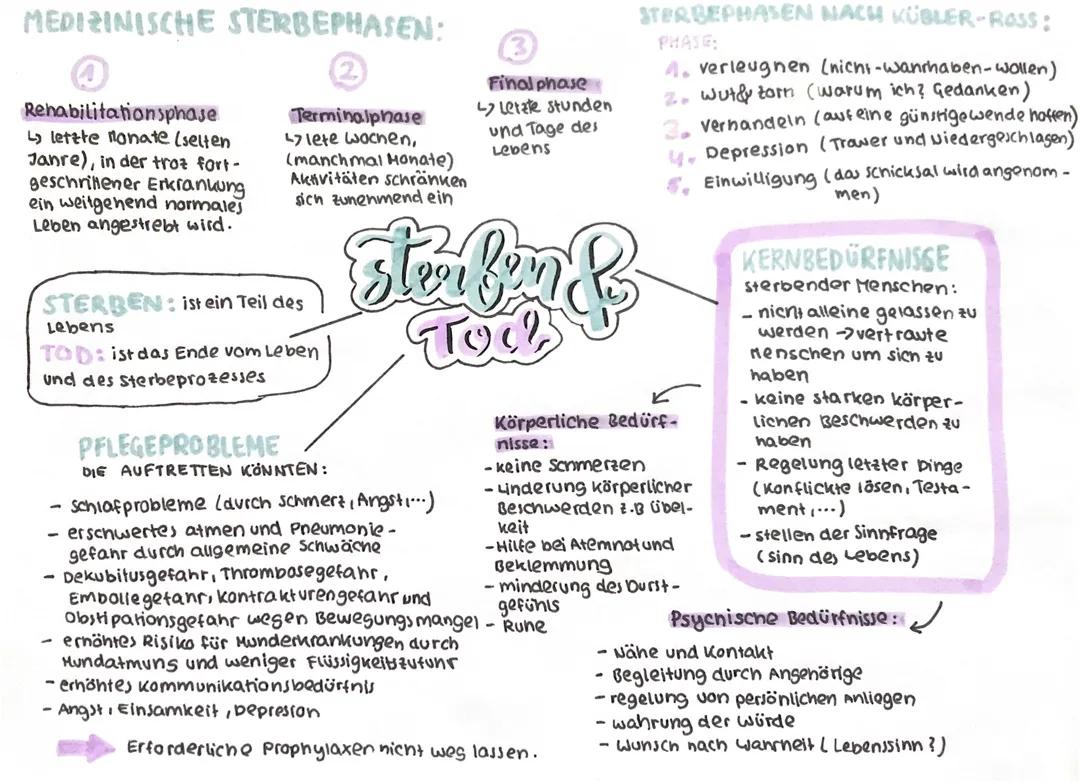 MEDIZINISCHE STERBEPHASEN:
1
Rehabilitationsphase
↳ letzte Monate (selten
Jahre), in der troz fort-
geschrittener Erkrankung
ein weitgehend normales
Leben angestrebt wird.
2
Terminalphase
↳ letze Wochen,
(manchmal Monate)
Aktivitäten schränken
sich zunehmend ein
3
Finalphase
↳ Letzte Stunden
und Tage des
Lebens
STERBEPHASEN NACH KÜBLER-ROSS:
PHASE:
1. verleugnen (nicht-wahrhaben-wollen)
2. Wut & Zorn (warum ich? Gedanken)
3. Verhandeln (auf eine günstige wende hoffen)
4. Depression (Trauer und Niedergeschlagen)
5. Einwilligung (das Schicksal wird angenom-
men)
sterben &
Tod
STERBEN: ist ein Teil des
Lebens
TOD: ist das Ende vom Leben
und des Sterbeprozesses
KERNBEDÜRFNISSE
sterbender Menschen:
- nicht alleine gelassen zu
werden → vertraute
Menschen um sich zu
haben
- keine starken körper-
lichen Beschwerden zu
haben
- Regelung letzter Dinge
(Konflickte lösen, Testa-
ment,...)
- stellen der Sinnfrage
(Sinn des Lebens)
PFLEGEPROBLEME
DIE AUFTRETTEN KÖNNTEN:
- Schlafprobleme (durch Schmerz, Angst,...)
- erschwertes atmen und Pneumonie-
gefahr durch allgemeine Schwäche
- Dekubitusgefahr, Thrombosegefahr,
Emboliegefahr, Kontrakturengefahr und
Obstipationsgefahr wegen Bewegungsmangel
- erhöhtes Risiko für Munderkrankungen durch
Mundatmung und weniger Flüssigkeitszufuhr
- erhöhtes Kommunikationsbedürfnis
- Angst, Einsamkeit, Depression
Erforderliche Prophylaxen nicht weg lassen.
Körperliche Bedürf-
nisse:
- keine Schmerzen
- Linderung körperlicher
Beschwerden z.B Übel-
keit
- Hilfe bei Atemnot und
Beklemmung
- minderung des Durst-
gefühls
- Ruhe
Psychische Bedürfnisse:
- Nähe und Kontakt
- Begleitung durch Angehörige
- regelung von persönlichen Anliegen
- wahrung der Würde
- Wunsch nach Wahrheit (Lebenssinn?)